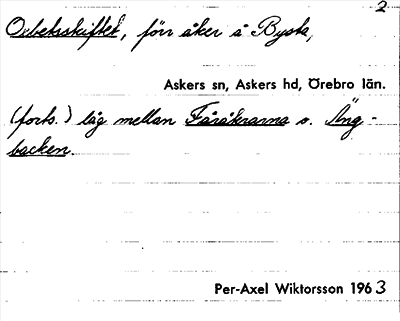 2
Orbetsskiftet, förr åker å Bysta,
Askers sn, Askers hd, Örebro län.
(forts.) låg mellan Fåråkrarna o. Äng-
backen.
Per-Axel Wiktorsson 1963